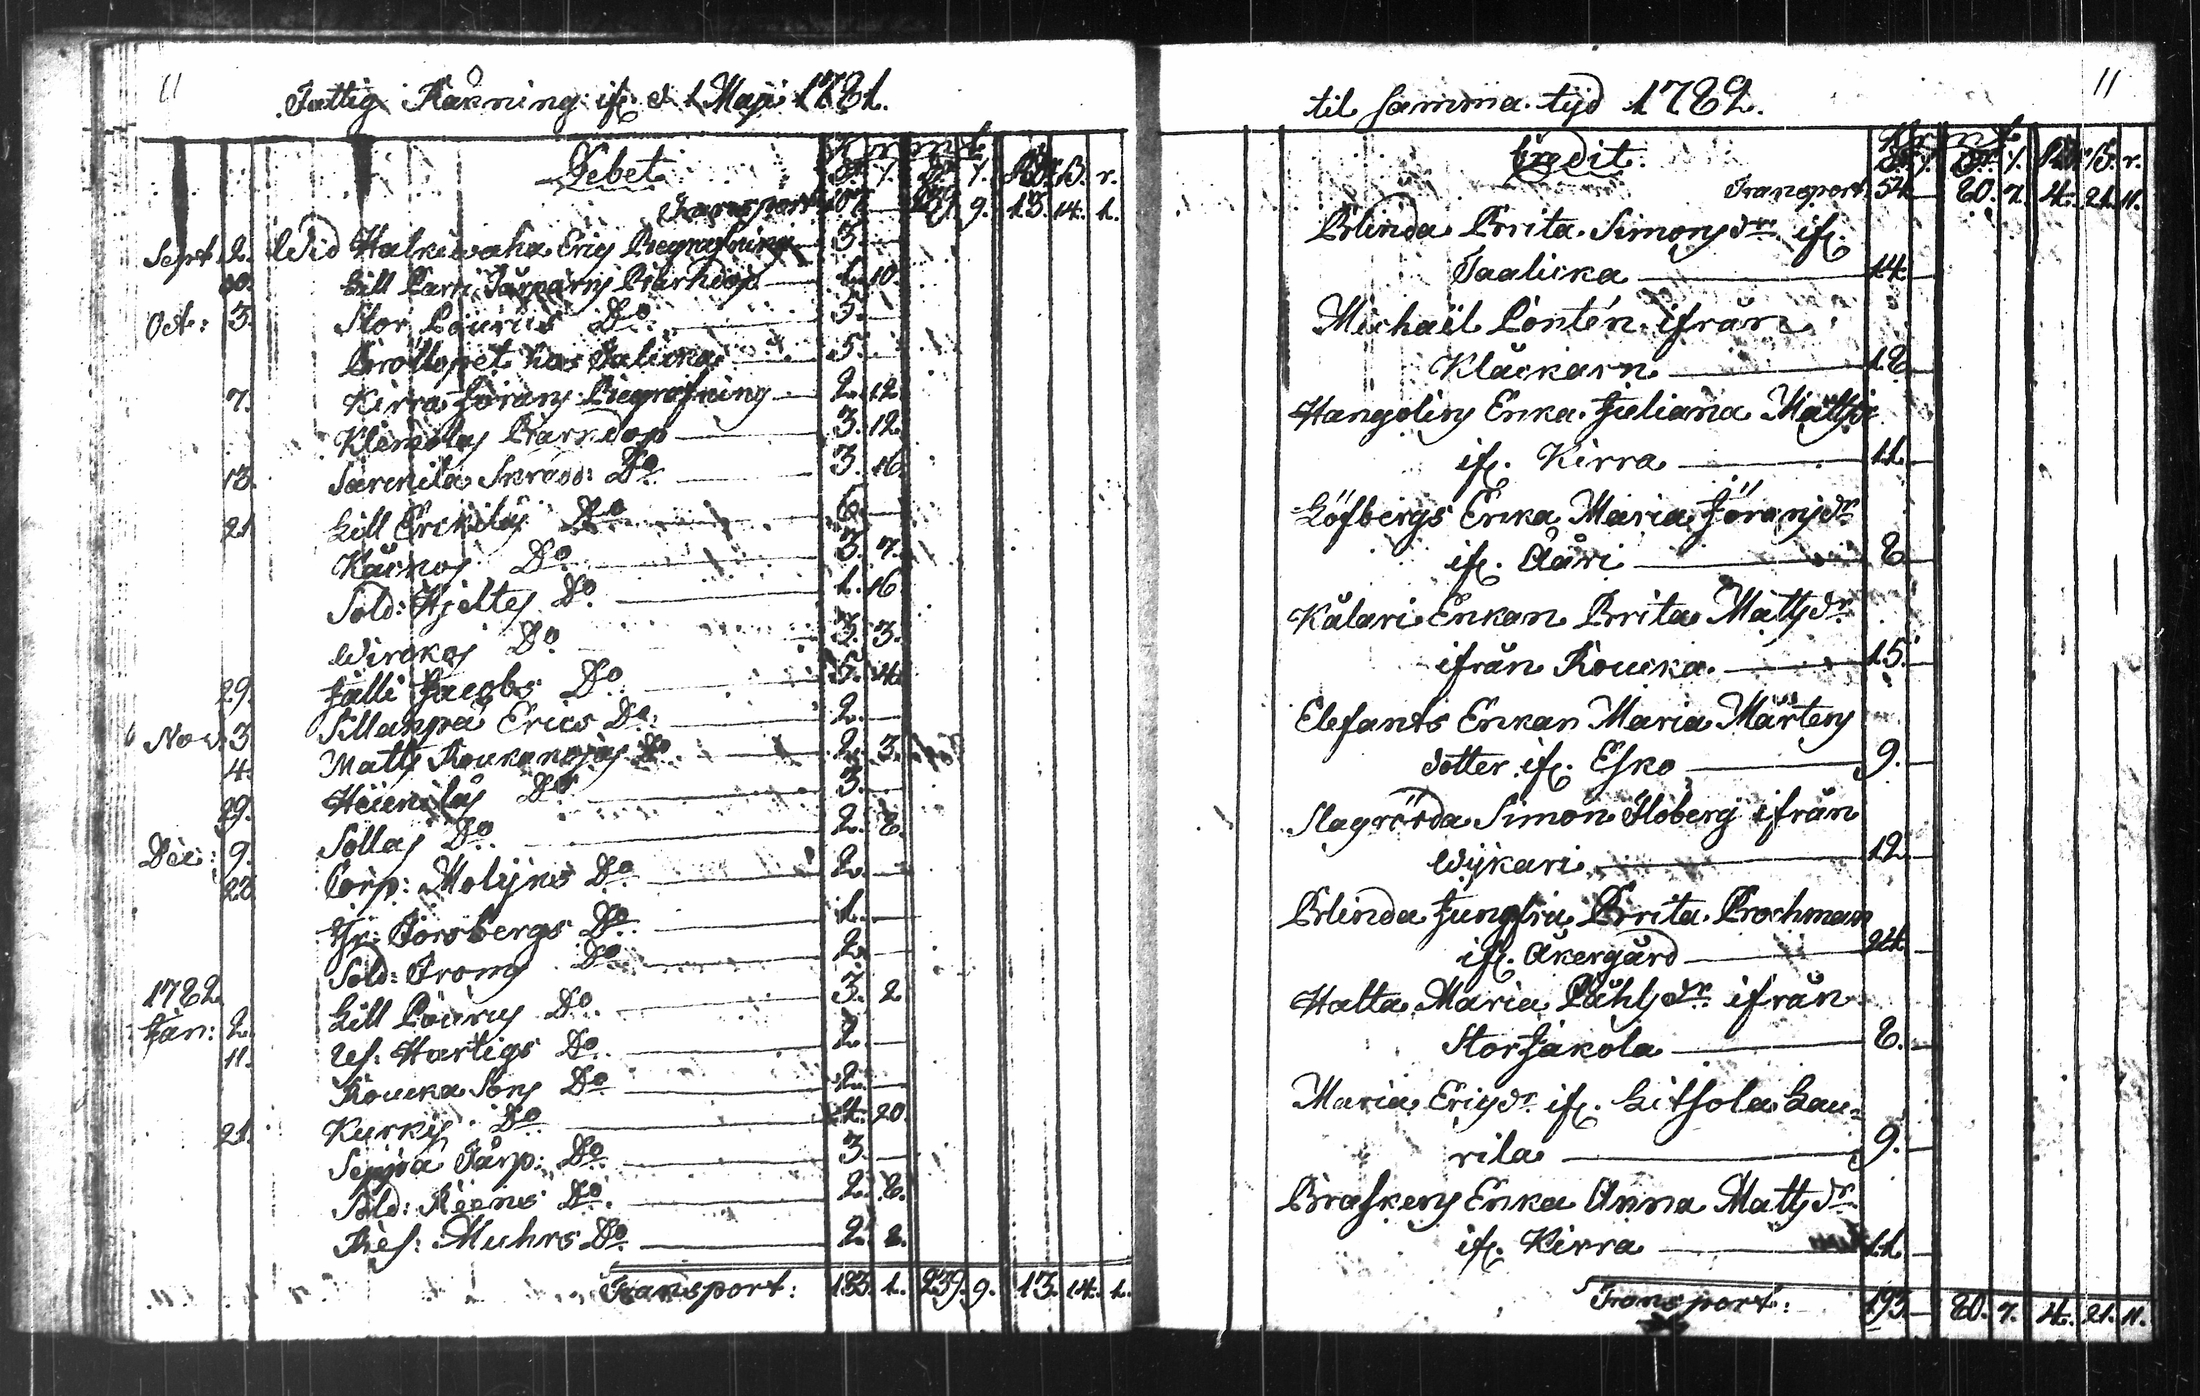 11
Fattig Räkning ifr. d. 1 Maji 1781.
Debet
Transport 107. — 239. 9. 13. 14. 1.
Sept. 2. Wid Halkiwaha Erics Begrafning 3. —
30. Lill Pärri Barndop 1. 10.
Oct: 3. Stor Pouttus Do. 3. —
Bröllopet hos Jalicka 5. —
7. Kirra Jörans Begrafning 2. 12.
Klemolas Barndop 3. 12.
13. Sarckila Do. 3. 16.
21. Lill Erckiläs Do. 6. —
Do. 3. 7.
Sold: Hjeltes Do. 1. 16.
Wirckas Do. 3. 3.
29. Jälli Jacobs Do. 5. 4.
Nov. 3. Sillanpä Erics Do. 2. —
4. Matts Do. 2. 3.
29. Heickiläs Do. 3. —
Dec: 9. Sollas Do. 2. 8.
28. Corp: Molijns Do. 2. —
Hr: Forsbergs Do. 1. —
Sold: Do. 2. —
1782 Lill Do. 3. 2.
Jan: 2. Hartigs Do. 2. —
11. Roucka Sons Do. 2. —
21. Kurkis Do. 4. 20.
Seppä Do. 3. —
Sold: Do. 2. 8.
Res: Muhrs Do. 2. 2.
Transport: 183. 1. 239. 9. 13. 14. 1.
11
til samma tijd 1782.
Credit.
Transport. 54. — 80. 7. 4. 21. 11.
Blinda Brita Simonsdr. ifr.
Jaalicka 14. —
Michaël Pontén ifrån
Kläckarn 18. —
Hangelins Enka Juliana Mattsdr
ifr. Kirra 11. —
Löfbergs Enka Maria Jöransdr
ifr. 8. —
Kålari Enkan Brita Mattsdr
ifrån Roucka 15. —
Elefants Enkan Maria Mårtens
dotter ifr. Esko 9. —
Slagrörda Simon Floberg ifrån
Wijkari 12. —
Blinda Jungfru Brita Prochman
ifr. Åkergård 24. —
Halta Maria Påhlsdr ifrån
StorJakola 8. —
Maria Ericsdr. ifr. Litsola Lau=
rila 9. —
Braskens Enka Anna Mattsdr
ifr. Kirra 11. —
Transport: 193. — 80. 7. 4. 21. 11.